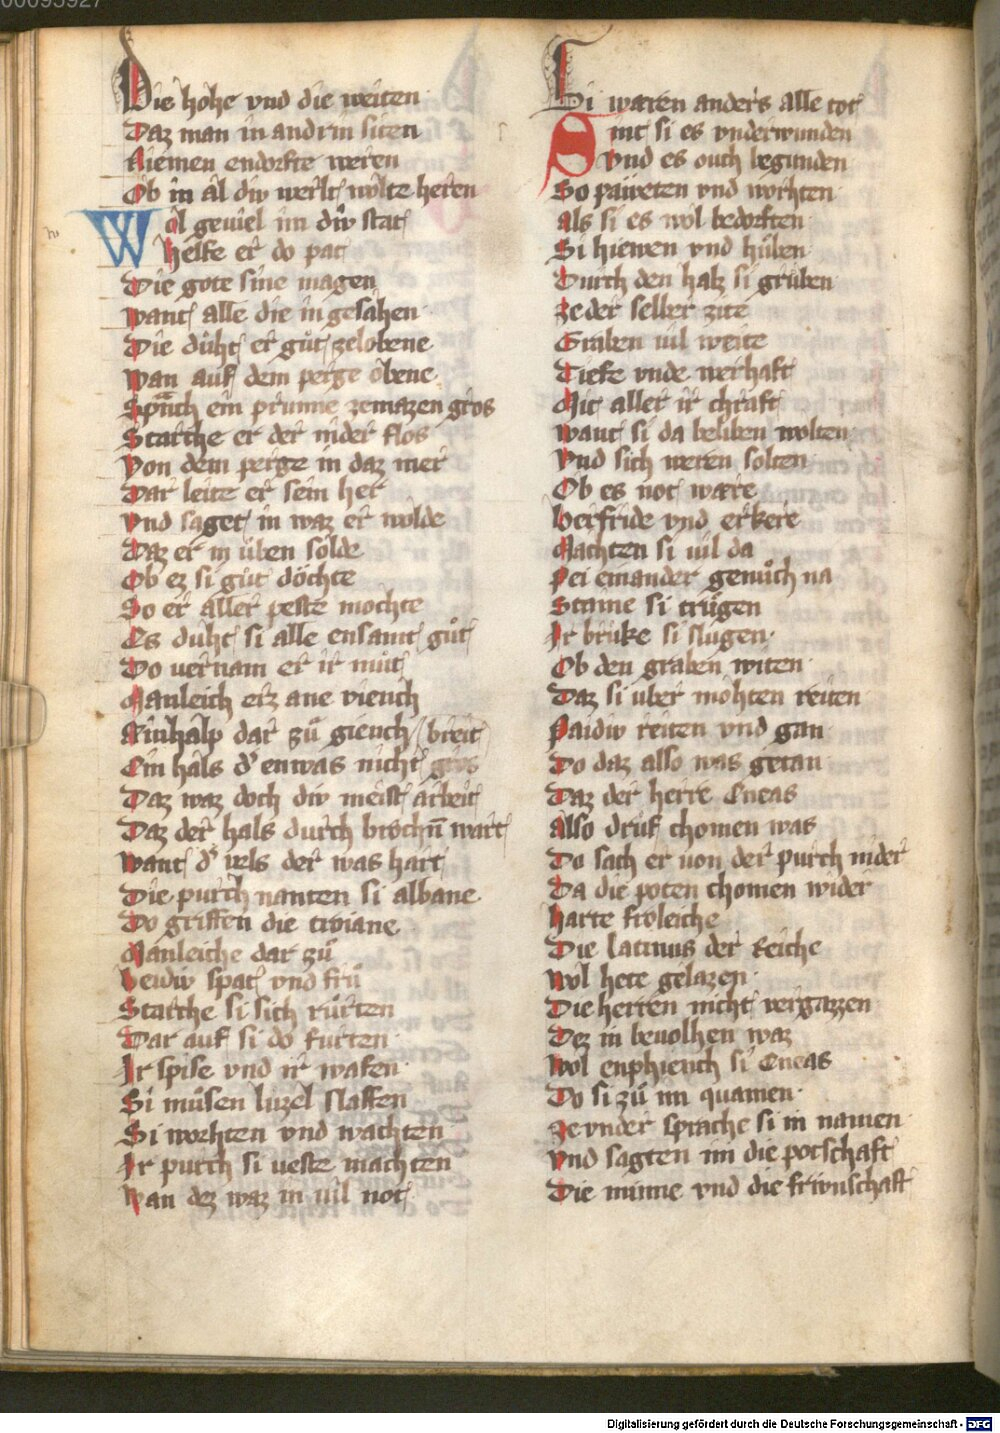 00095927
Die hohe vnd die weiten
Daz man in andrin siten
Niemen endorfte weren
Ob in al div werlt wolte heren
Wol geuiel im div stat
Helfe er do pat
Die gote sine magen
Want alle die in gesahen
Die duht er guͦt zelobene
Wan auf dem perge obene
Spͣnch ein prunne zemazen gros
Starche er der nider flos
Von dem perge in daz mer
Dar leite er sein her
Vnd saget in waz er wolde
Daz er in uͤben solde
Ob ez si guͦt dochte
So er aller peste mochte
Es duht si alle ensamt guͦt
Do uernam er ir muͦt
Manleich erz ane viench
Einhalp dar zuͦ giench / breit
Ein hals dͤ enwas nicht gros
Daz waz doch div meist arbeit
Daz der hals durch brochn̄ wart
Want dͤ uels der was hart
Die purch nanten si albane
Do griffen die troiane
Manleiche dar zuͦ
Beidiv spat vnd fruͦ
Starche si sich ruͦrten
Dar auf si do furten
Ir spise vnd ir wafen
Si muͦsen luzel slaffen
Si worhten vnd wachten
Ir purch si ueste machten
Wan dez waz in uil not
Si waren anders alle tot
Sint si es vnderwunden
Vnd es ouch begunden
So paweten vnd worhten
Als si es wol bedorften
Si hiewen vnd huͦben
Durch den hals si gruben
Ze der selber zite
Graben uil weite
Tiefe vnde werhaft
Mit aller ir chraft
Want si da beliben wolten
Vnd sich weren solten
Ob es not wære
Herfride vnd erkere
Machten si uil da
Pei einander genuͦch na
Staine si truͦgen
Ir bruke si slugen
Ob den graben witen
Daz si uber mohten reiten
Paidiv reiten vnd gan
Do daz also was getan
Daz der herre Eneas
Also druf chomen was
Do sach er uon der purch nider
Da die poten chomen wider
Harte froleiche
Die latinus der reiche
Wol hete gelazen
Die herren nicht vergazzen
Dez in beuolhen waz
Wol enphiench si Eneas
Do si zuͦ im quamen
Ze vnder sprache si in namen
Vnd sagten im die potschaft
Die minne vnd die friwnschaft
Digitalisierung gefördert durch die Deutsche Forschungsgemeinschaft - DFG